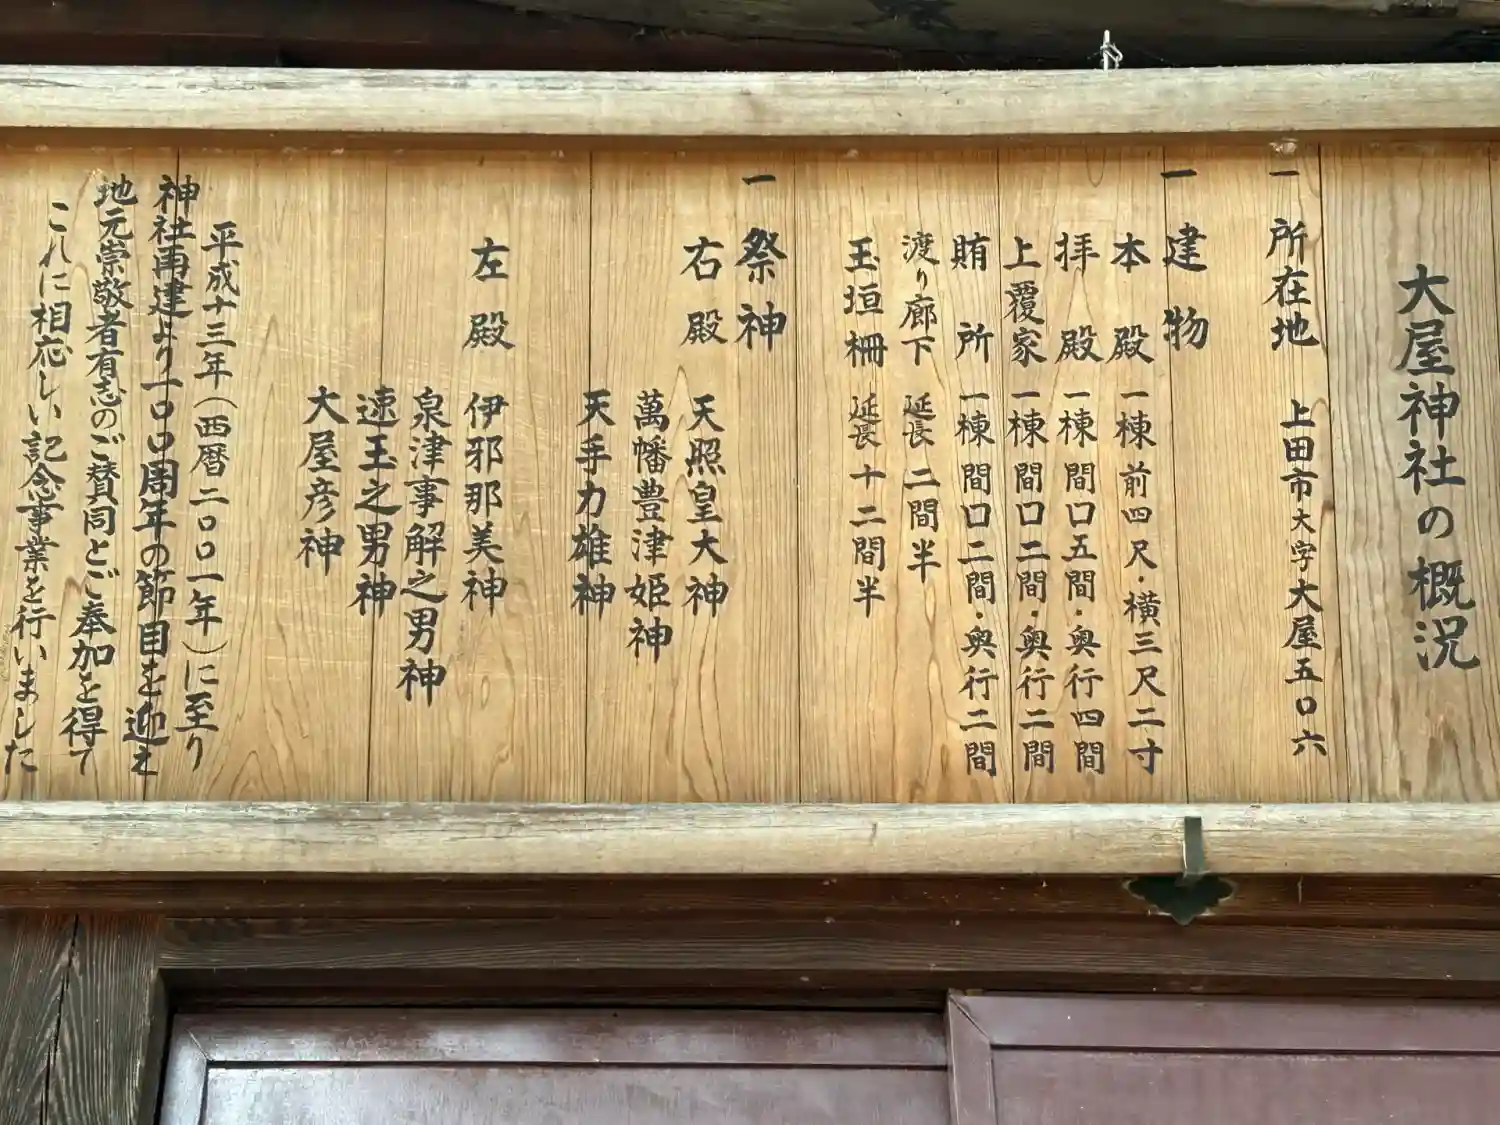 大屋神社の概況
一 所在地 上田市大字大屋五〇六
一 建物
本殿 一棟前四尺・横三尺二寸
拝殿 一棟間口五間・奥行四間
上覆家 一棟間口二間・奥行二間
賄所 一棟間口二間・奥行二間
渡り廊下 延長二間半
玉垣柵 延長十二間半
一 祭神
右殿 天照皇大神
萬幡豊津姫神
天手力雄神
左殿 伊邪那美神
泉津事解之男神
速玉之男神
大屋彦神
平成十三年(西暦二〇〇一年)に至り
神社再建より一〇〇周年の節目を迎え
地元崇敬者有志のご賛同とご奉加を得て
これに相応しい記念事業を行いました